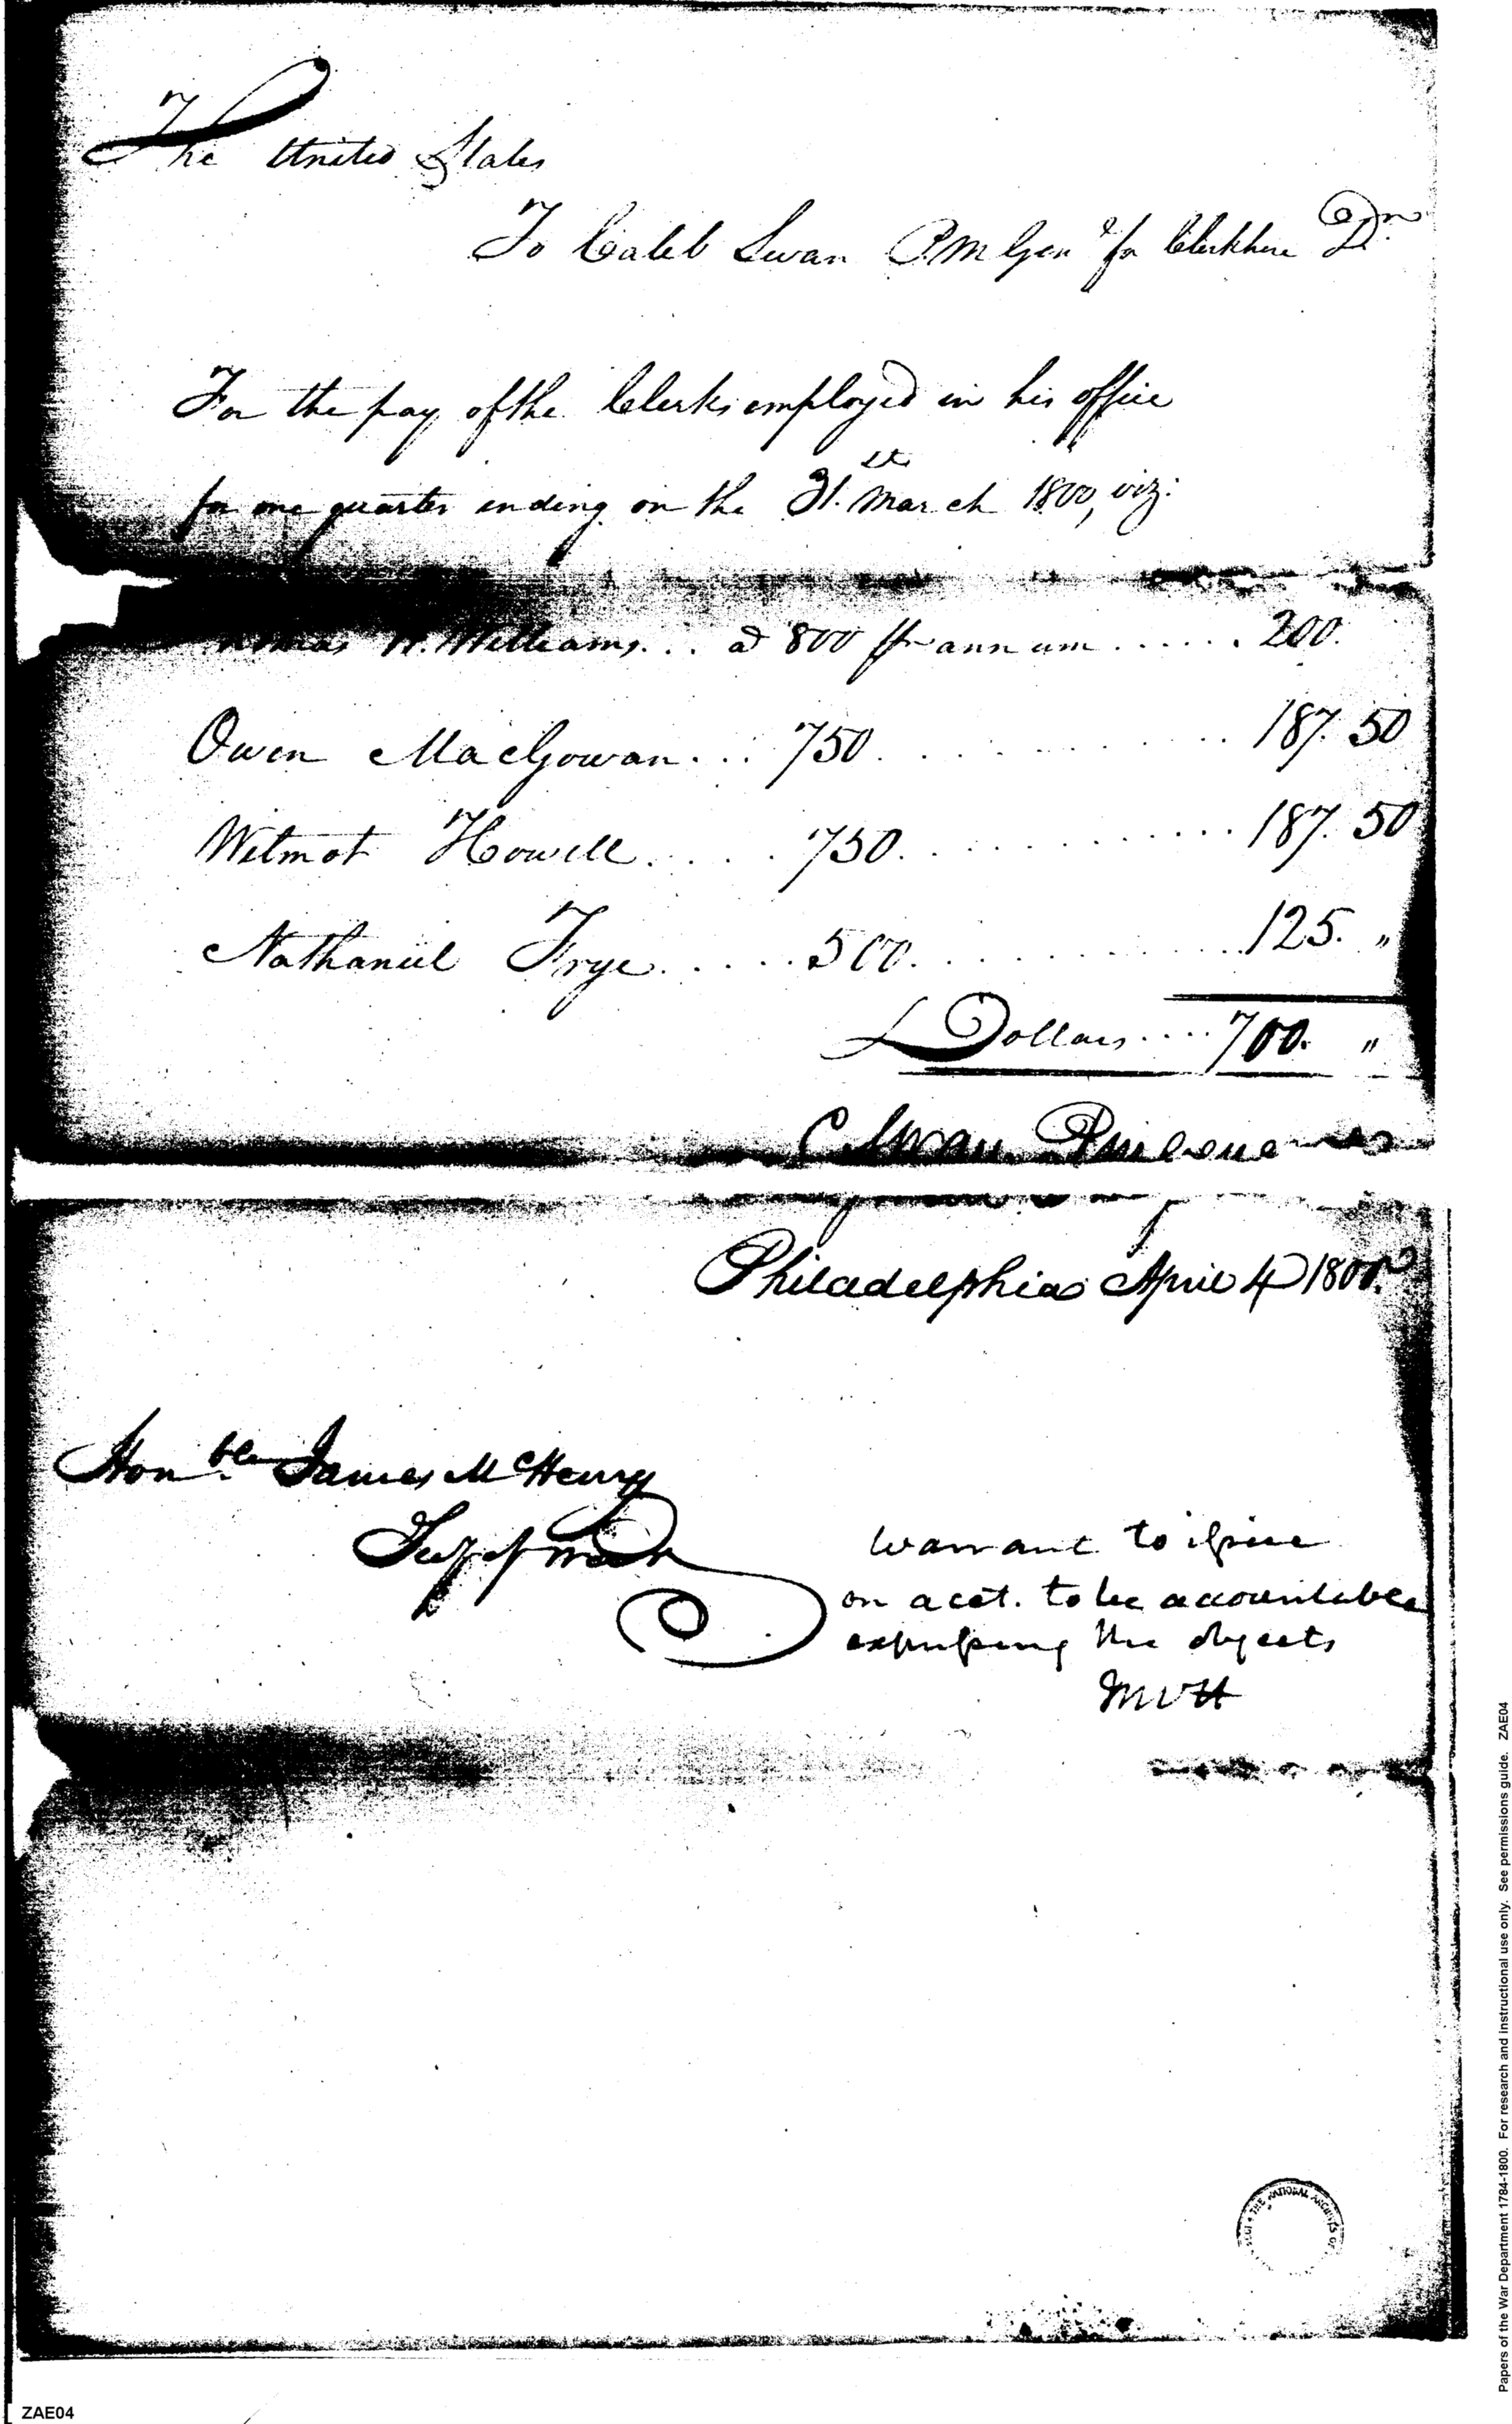 The United States
To Caleb Swan P.M Genl for Clerkhire Dr.
For the pay of the Clerks employed in his office
for one quarter ending on the 31.st March 1800, viz:
W. Williams... a 800 pr annum ...... 200.
Owen MacGowan... 750. ............ 187. 50
Wilmot Howell..... 750. ............ 187. 50
Nathaniel Frye...... 500. ............ 125. "
Dollars.... 700. "
C. Swan
Philadelphia April 4 1800.
Honble. James McHenry
Secy of War
warrant to issue
on acct. to be accountable
expressing the objects
McH
THE NATIONAL ARCHIVES OF
ZAE04
Papers of the War Department 1784-1800. For research and instructional use only. See permissions guide. ZAE04